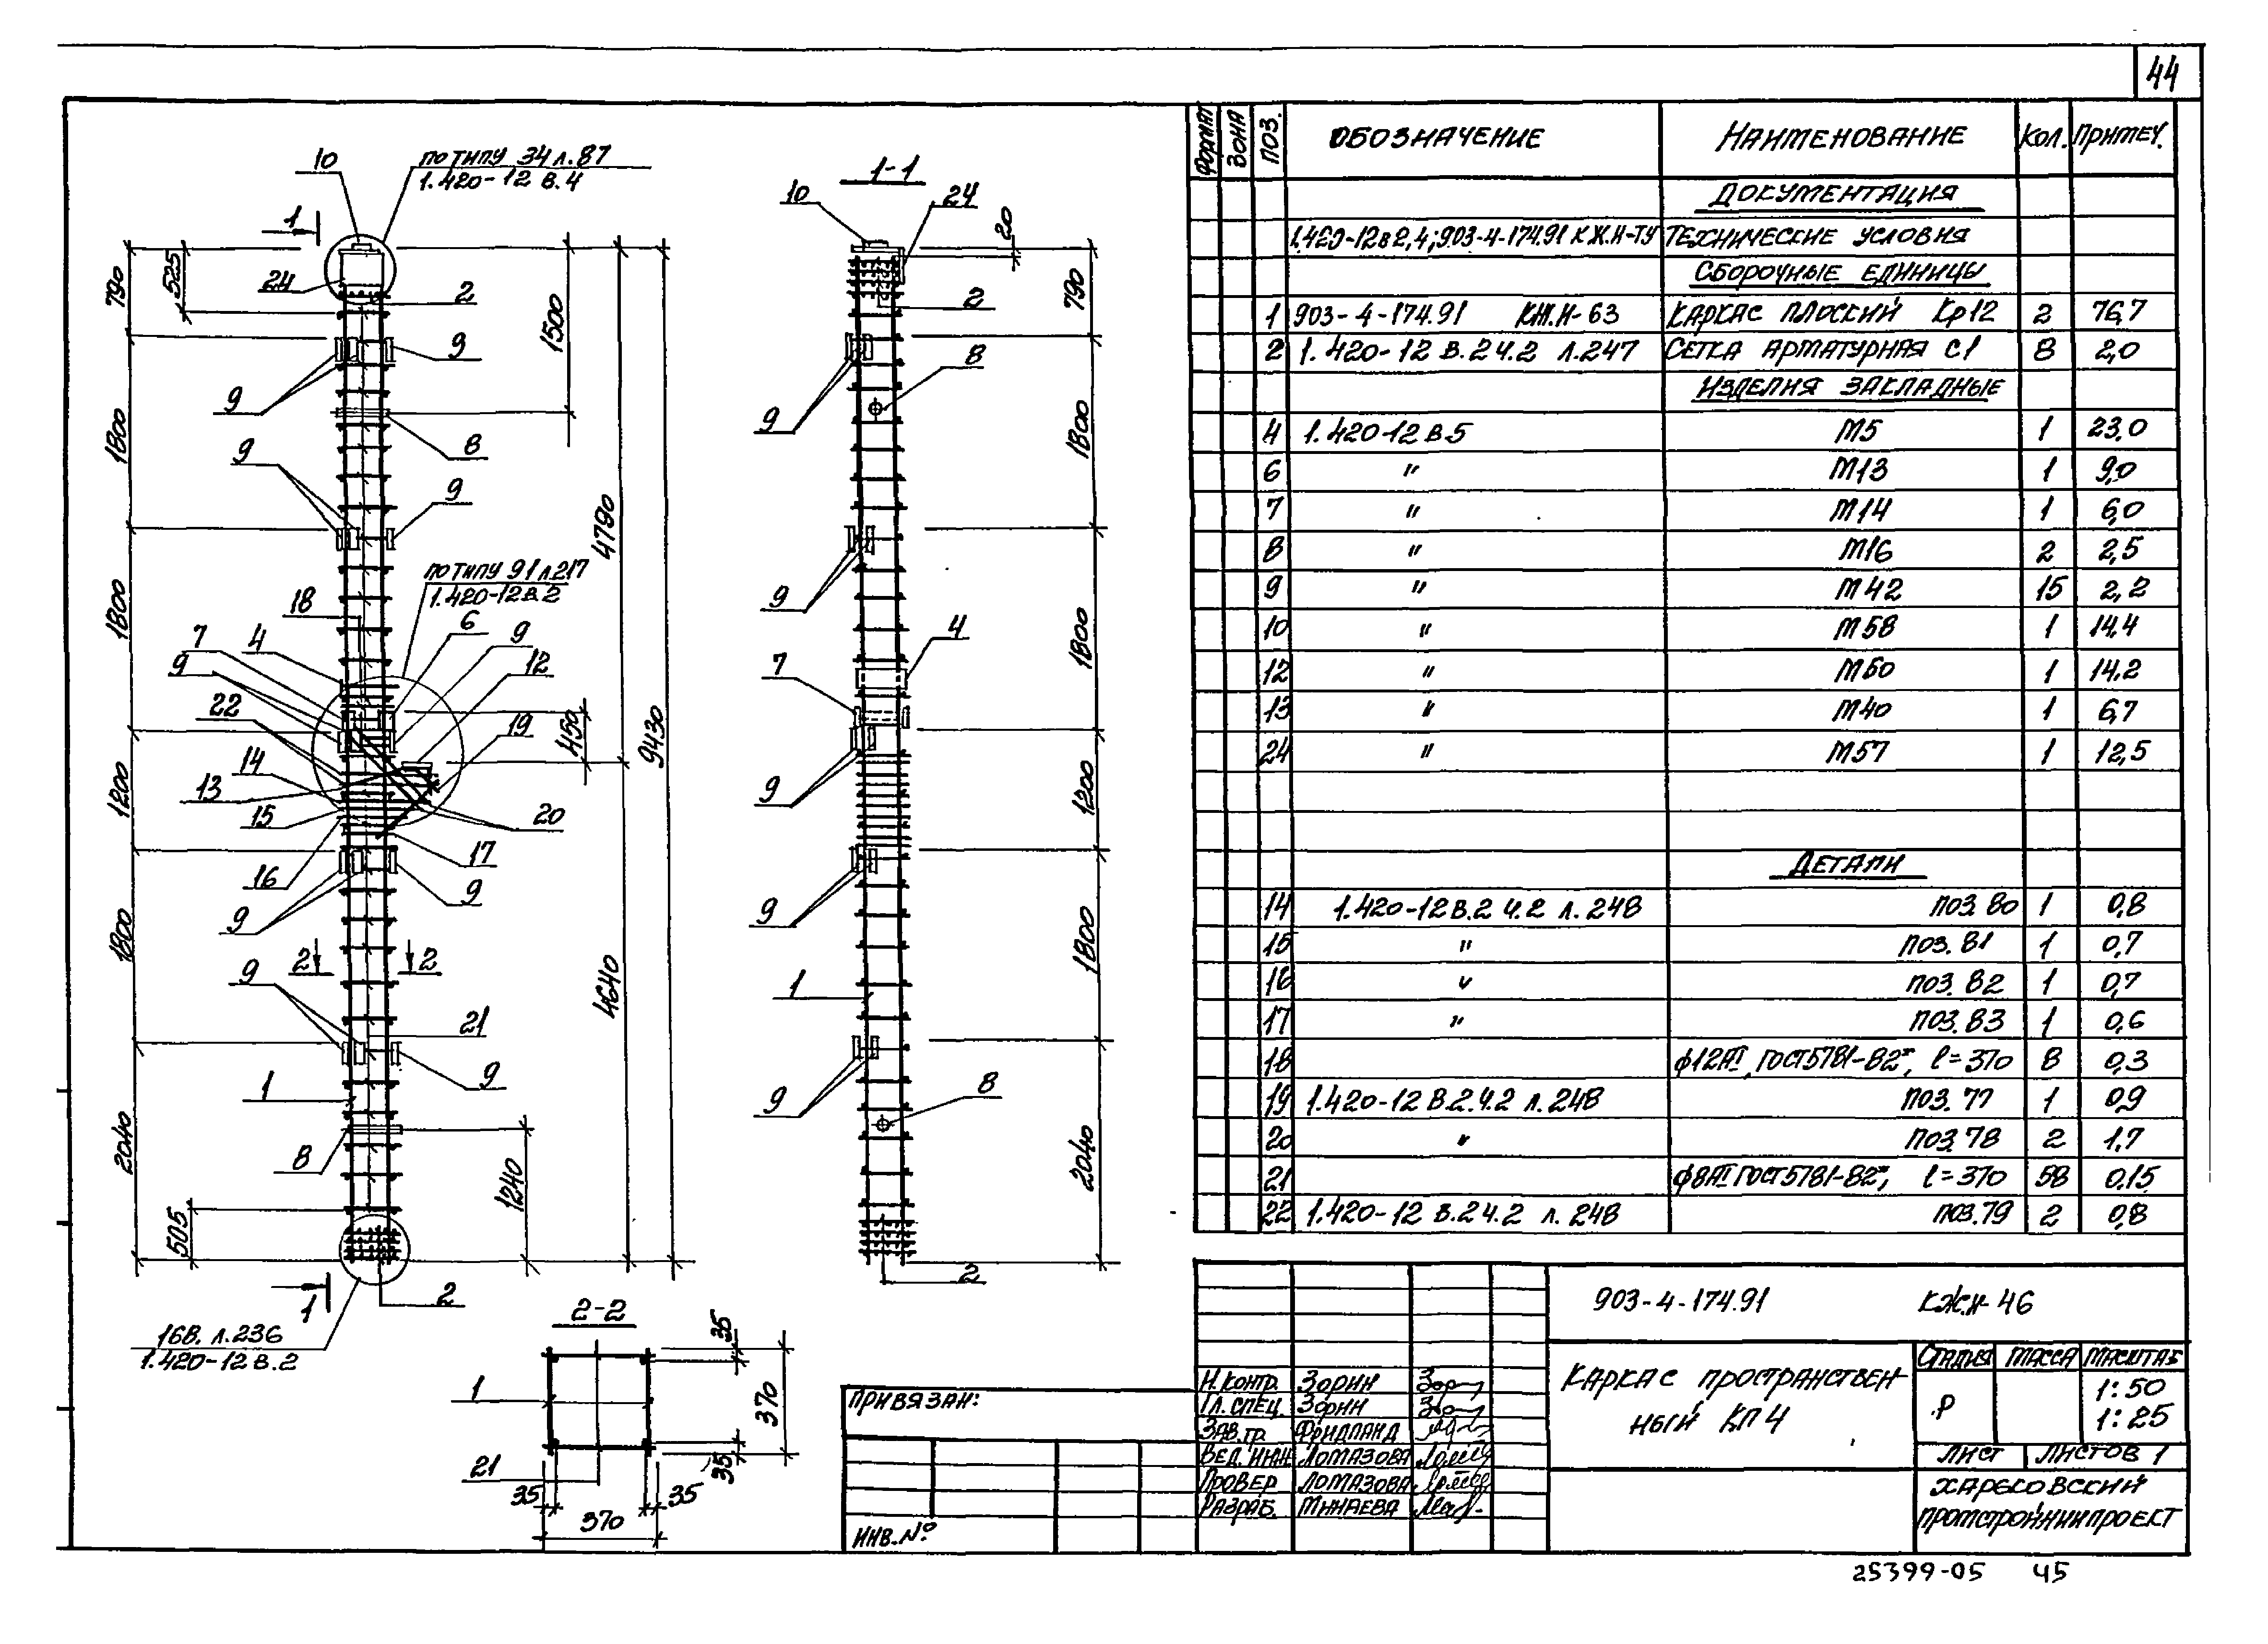 44
ФОРМАТ ЗОНА ПОЗ. ОБОЗНАЧЕНИЕ НАИМЕНОВАНИЕ КОЛ. ПРИМЕЧ.
ДОКУМЕНТАЦИЯ
1.420-12в2,4; 903-4-174.91 КЖ.И-ТУ ТЕХНИЧЕСКИЕ УСЛОВИЯ
СБОРОЧНЫЕ ЕДИНИЦЫ
1 903-4-174.91 КЖ.И-63 КАРКАС ПЛОСКИЙ Кр12 2 76,7
2 1.420-12 В.2 Ч.2 Л.247 СЕТКА АРМАТУРНАЯ С1 8 2,0
ИЗДЕЛИЯ ЗАКЛАДНЫЕ
4 1.420-12 В.5 М5 1 23,0
6 " М13 1 9,0
7 " М14 1 6,0
8 " М16 2 2,5
9 " М42 15 2,2
10 " М58 1 14,4
12 " М60 1 14,2
13 " М40 1 6,7
24 " М57 1 12,5
ДЕТАЛИ
14 1.420-12 В.2 Ч.2 Л.248 ПОЗ. 80 1 0,8
15 " ПОЗ. 81 1 0,7
16 " ПОЗ. 82 1 0,7
17 " ПОЗ. 83 1 0,6
18 ф12АI, ГОСТ 5781-82*, ℓ=370 8 0,3
19 1.420-12 В.2.Ч.2 Л.248 ПОЗ. 77 1 0,9
20 " ПОЗ. 78 2 1,7
21 ф8АI ГОСТ 5781-82*, ℓ=370 58 0,15
22 1.420-12 В.2 Ч.2 Л. 248 ПОЗ. 79 2 0,8
10
ПО ТИПУ 34 Л.87
1.420-12 В.4
1
790
525
24
2
1500
9
9
1800
8
9
9
4790
ПО ТИПУ 91 Л.217
1.420-12 В.2
18
1800
7
4
6
9
9
12
22
19
450
9430
14
13
1200
15
20
17
16
9
9
1800
2
2
9
4640
21
9
1
2040
8
1240
505
1
2
16В. Л.236
1.420-12 В.2
1-1
10
24
20
2
790
8
9
1800
9
4
1800
7
9
1200
9
1800
1
8
9
2040
2
2-2
35
1
370
21
35
35
35
370
ПРИВЯЗАН:
ИНВ. №
903-4-174.91 КЖ.И-46
КАРКАС ПРОСТРАНСТВЕН
НЫЙ КП4
СТАДИЯ МАССА МАСШТАБ
Р 1:50
1:25
ЛИСТ ЛИСТОВ 1
ХАРЬКОВСКИЙ
ПРОМСТРОЙНИИПРОЕКТ
Н.КОНТР. ЗОРИН
ГЛ.СПЕЦ. ЗОРИН
ЗАВ.ГР. ФРИДЛАНД
ВЕД.ИНЖ ЛОМАЗОВА
ПРОВЕР ЛОМАЗОВА
РАЗРАБ. МИНАЕВА
25399-05 45